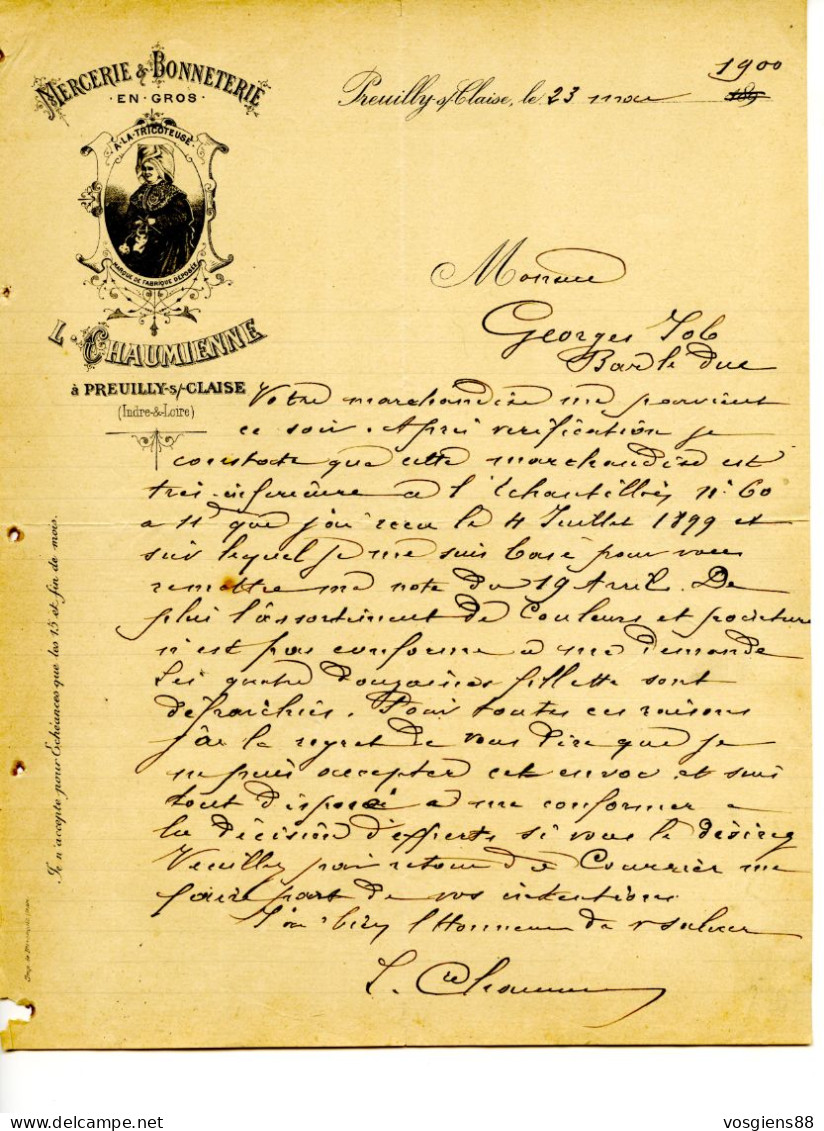 MERCERIE & BONNETERIE
EN GROS
À LA TRICOTEUSE
MARQUE DE FABRIQUE DÉPOSÉE
L. CHAUMIENNE
à PREUILLY-s/-CLAISE
(Indre-&-Loire)
Preuilly-s/Claise, le 23 mai 1900
189
Monsieur
Georges Job
Bar le Duc
Votre marchandise me parvient
ce soir. Après verification je
constate que cette marchandise est
très inferieure a l'Echantillon n° 60
a 11f que j'ai recu le 4 Juillet 1899 et
sur lequel je me suis basé pour vous
remettre ma note du 19 Avril. De
plus l'assortiment de Couleurs et
n'est pas conforme a ma demande
Les quatre douzaines fillette sont
défraichies. Pour toutes ces raisons
j'ai le regret de vous dire que je
ne puis accepter cet envoi et suis
tout disposé a me conformer a
la décision d'experts si vous le désirez
Veuillez par retour de Courrier me
faire part de vos intentions
J'ai bien l'Honneur de v saluer
L. Chaumienne
Je n'accepte pour Echéances que les 15 et fin de mois.